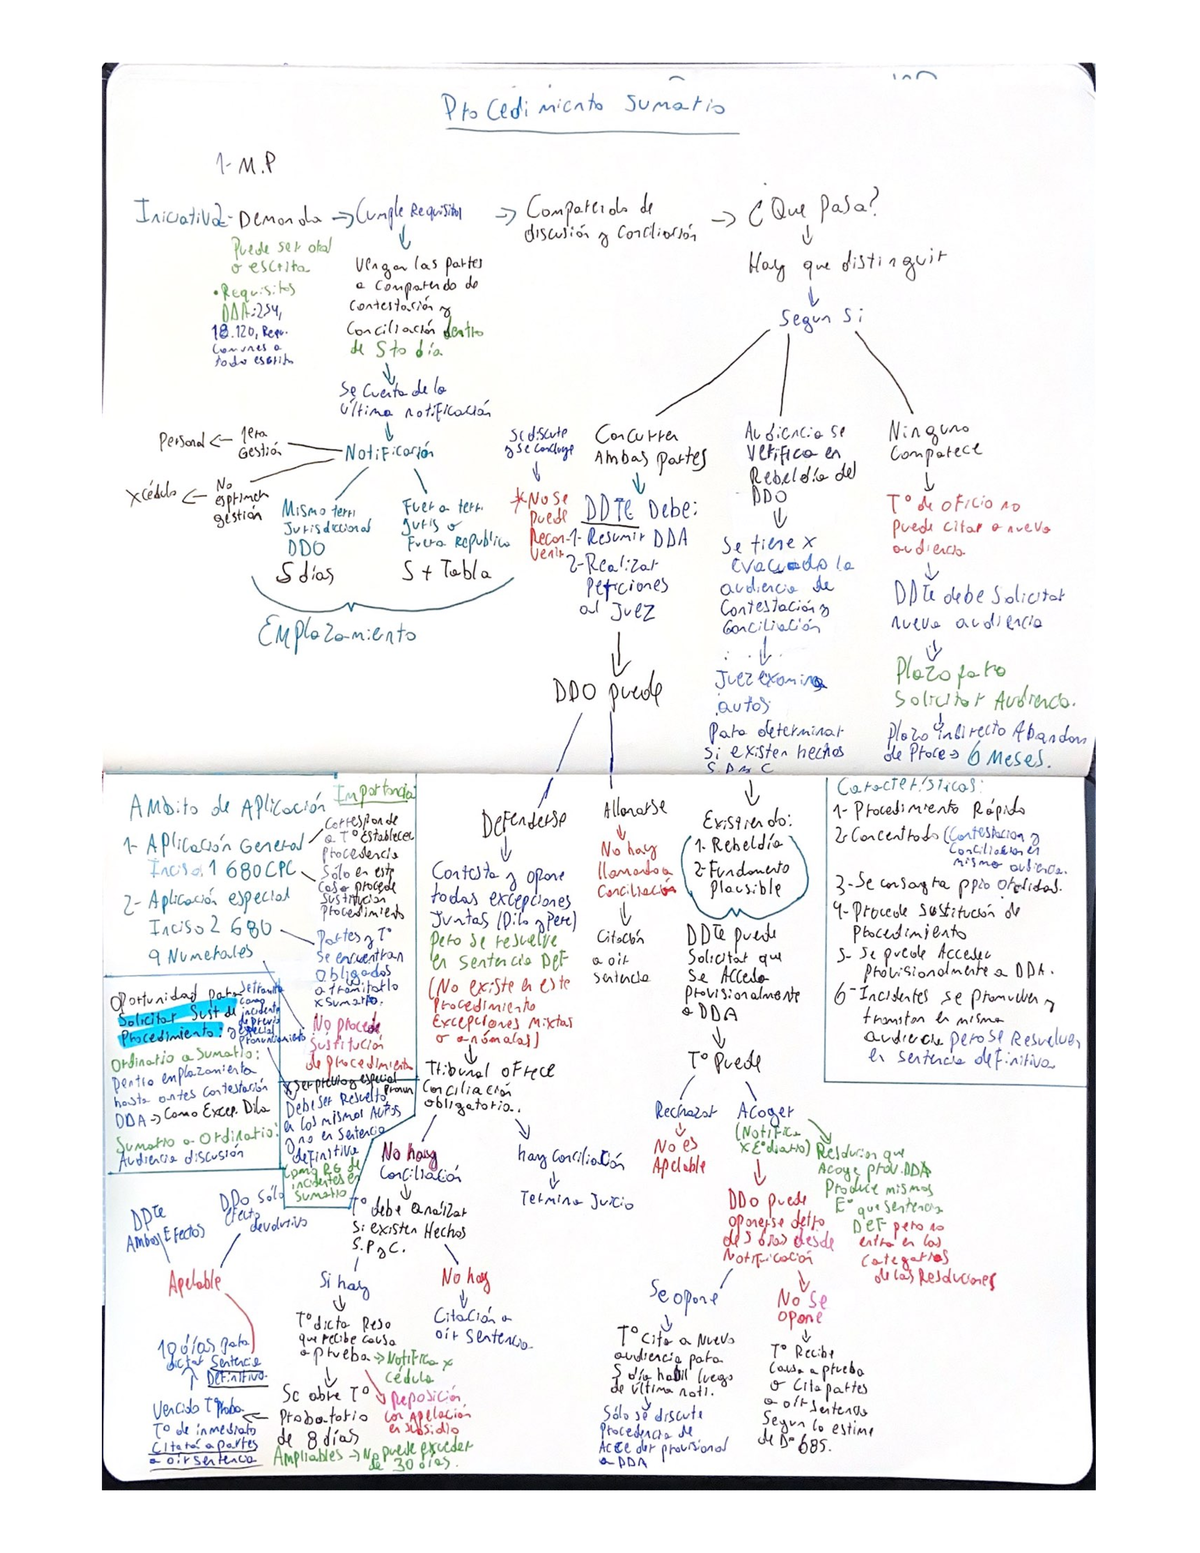 Procedimiento Sumario
1- M.P
Iniciativa
2- Demanda → Cumple Requisitos → Comparendo de
discusión y Conciliación → ¿Que pasa?
Puede ser oral
o escrita
• Requisitos
DDA: 254,
18.120, Requ.
Comunes a
todo escrito
Vengan las partes
a comparendo de
contestación y
Conciliación dentro
de 5to día
Se Cuenta de la
última notificación
Notificación
1era
Gestión
Personal
No
es primera
gestión
x cédula
Mismo terri
Jurisdiccional
DDO
5 días
Fuera terri
Juris o
Fuera Republica
5 + Tabla
Emplazamiento
Hay que distinguir
Segun Si
Concurren
Ambas partes
DDTE Debe:
1- Resumir DDA
2- Realizar
Peticiones
al Juez
Si discute
y se concluye
*No Se
puede
Recon-
venir
DDO puede
Audiencia se
Verifica en
Rebeldía del
DDO
Se tiene x
evacuada la
audiencia de
Contestación y
Conciliación
Juez examina
autos
Para determinar
si existen hechos
S.P y C
Ninguno
Comparece
T° de oficio no
puede citar a nueva
audiencia
DDTE debe Solicitar
nueva audiencia
Plazo para
Solicitar Audiencia.
Plazo indirecto Abandon
de Proce → 6 Meses.
Ambito de Aplicación
1- Aplicación General
Inciso 1 680 CPC
2- Aplicación especial
Inciso 2 680
9 Numerales
Importancia
Corresponde
a T° Establecer
Procedencia
Sólo en este
Caso procede
Sustitución
Procedimiento
Partes y T°
Se encuentran
Obligados
a tramitarlo
x Sumario.
No procede
Sustitución
de procedimiento
Oportunidad para
Solicitar Sust de
Procedimiento:
Se tramita
como
incidente
de previo
y especial
pronunciamiento
Ordinario a Sumario:
Dentro emplazamiento
hasta antes Contestación
DDA → Como Excep. Dila
Sumario a Ordinario:
Audiencia discusión
x Ser previo y especial
pronun
Debe Ser Resuelto
en Los mismos Autos
y no en Sentencia
definitiva
Como RG de
incidentes en
Sumario
Defenderse
Contesta y opone
todas excepciones
Juntas (Dila y Pere)
Pero se resuelve
en sentencia DEF
(No existe en este
Procedimiento
Excepciones Mixtas
o anómalas)
Tribunal ofrece
Conciliación
obligatoria.
No hay
Conciliación
hay Conciliación
Termina Juicio
T° debe analizar
Si existen Hechos
S.P y C.
Si hay
No hay
Citación a
oir Sentencia.
T° dicta Reso
que recibe causa
a prueba → Notifica x
cédula
Reposición
con Apelación
en subsidio
Se abre T°
Probatorio
de 8 días
Ampliables → No puede exceder
de 30 días.
Vencido T° Proba.
T° de inmediato
Citará a partes
a oir sentencia
10 días para
dictar Sentencia
Definitiva.
Apelable
DDTE
Ambos Efectos
DDO Sólo
Efecto
devolutivo
Allanarse
No hay
llamado a
Conciliación
Citación
a oir
sentencia
Existiendo:
1- Rebeldía
2- Fundamento
Plausible
DDTE puede
Solicitar que
Se Acceda
Provisionalmente
a DDA
T° Puede
Rechazar
No es
Apelable
Acoger
(Notifica
x E° diario)
Resolución que
Acoge prov. DDA
Produce mismos
E° que sentencia
DEF pero no
entra en las
Categorías
de las Resoluciones
DDO puede
oponerse detro
de 5 días desde
Notificación
Se opone
No Se
opone
T° Cita a Nueva
audiencia para
5 día habil luego
de última noti.
Sólo se discute
Procedencia de
Acceder provisional
a DDA
T° Recibe
Causa a prueba
o Cita partes
a oir Sentencia
Segun lo estime
de D° 685.
Características:
1- Procedimiento Rápido
2- Concentrado (Contestación y
Conciliación en
mismo audiencia.
3- Se consagra ppio oralidad.
4- Procede Sustitución de
Procedimiento
5- Se puede Acceder
Provisionalmente a DDA.
6- Incidentes se promueven y
tramitan en misma
audiencia pero se Resuelven
en sentencia definitiva